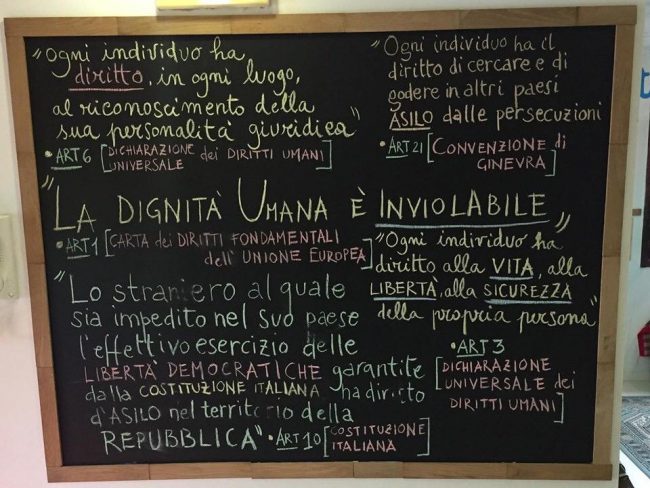 "Ogni individuo ha
diritto, in ogni luogo,
al riconoscimento della
sua personalità giuridica"
• ART 6 [DICHIARAZIONE dei DIRITTI UMANI]
UNIVERSALE
"Ogni individuo ha il
diritto di cercare e di
godere in altri paesi
ASILO dalle persecuzioni
• ART 21 [CONVENZIONE di
GINEVRA]
"LA DIGNITÀ UMANA È INVIOLABILE"
• ART 1 [CARTA dei DIRITTI FONDAMENTALI
dell'UNIONE EUROPEA]
"Ogni individuo ha
diritto alla VITA, alla
LIBERTÀ, alla SICUREZZA
della propria persona"
• ART 3
[DICHIARAZIONE
UNIVERSALE dei
DIRITTI UMANI]
"Lo straniero al quale
sia impedito nel suo paese
l'effettivo esercizio delle
LIBERTÀ DEMOCRATICHE garantite
dalla COSTITUZIONE ITALIANA ha diritto
d'ASILO nel territorio della
REPUBBLICA" • ART 10 [COSTITUZIONE
ITALIANA]